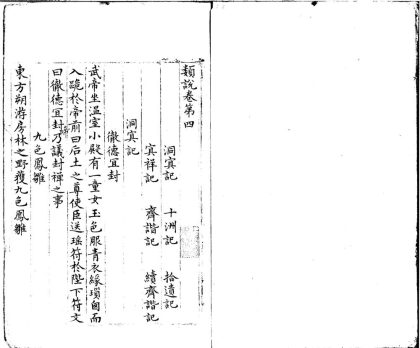 類說卷第四
洞冥記　十洲記　拾遺記
冥祥記　齊諧記　續齊諧記
洞冥記
徹德宜封
武帝坐温室小殿有一童女玉色服青衣緣瑣自而
入跪於帝前曰后土之尊使臣送瑶符於陛下符文
曰徹德宜封乃議封禪之事
九色鳳雛
東方朔游房林之野獲九色鳳雛